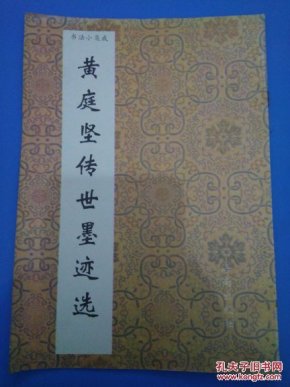 书法小集成
黄庭坚传世墨迹选
孔夫子旧书网